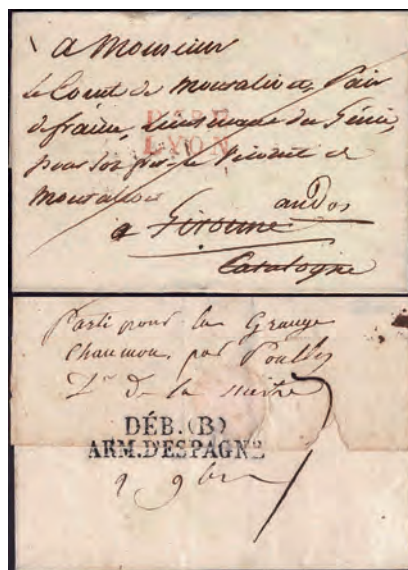 a Monsieur
Le Comte de Montalivet, Pair
P.69.P.
de france, Lieutenant du Génie,
LYON
pour son frère le Vicomte de
Montalivet
au Dos
a Gironne
Catalogne
Parti pour la Grange
Chaumon, par Pouilly
Dt de la nièvre
7
DÉB. (B)
ARM. D'ESPAGNE
9 9bre